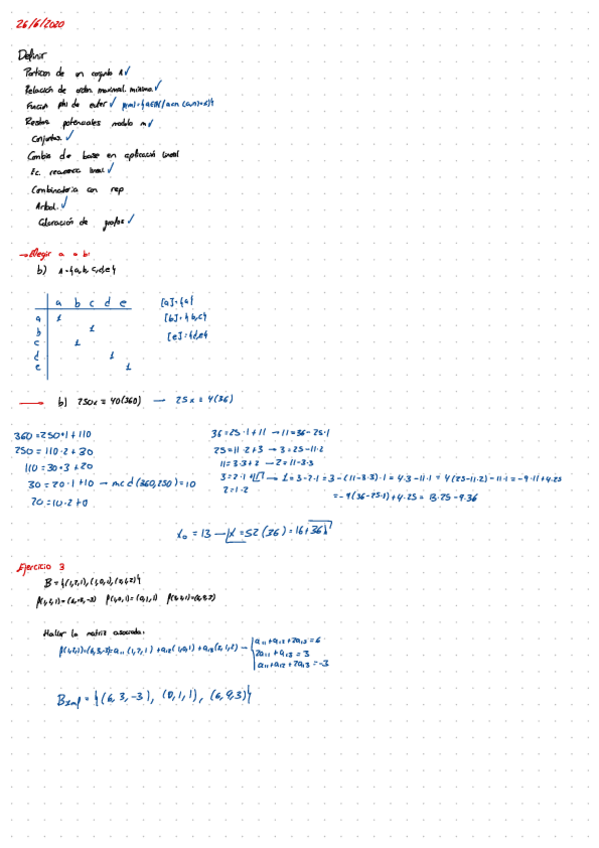 26/6/2020
Definir
Particon de un conjunto A ✓
Relación de orden, maximal, minimo ✓
Funcion phi de euler ✓
Restos potenciales modulo m ✓
Conjuntos ✓
Cambio de base en aplicació lineal
Ec. recurrencia lineal ✓
Combinatoria con rep
Arbol. ✓
Coloración de grafos ✓
→ Elegir a o b:
b) A={a,b,c,d,e}
a b c d e
a 1
b 1
c 1
d 1
e 1
[a]={a}
[b]={b,c}
[e]={d,e}
b) 250x ≡ 40(360) → 25x ≡ 4(36)
360=250·1+110
250=110·2+30
110=30·3+20
30=20·1+10 → mcd(360,250)=10
20=10·2+0
36=25·1+11 → 11=36-25·1
25=11·2+3 → 3=25-11·2
11=3·3+2 → 2=11-3·3
3=2·1+1 → 1=3-2·1=3-(11-3·3)·1=4·3-11·1=4(25-11·2)-11·1=-9·11+4·25
2=1·2
=-9(36-25·1)+4·25=13·25-9·36
x₀=13 → x=52(36)=16+36λ
Ejercicio 3
Hallar la matriz asociada:
a₁₁+a₁₂+2a₁₃=6
2a₁₁+a₁₃=3
a₁₁+a₁₂+2a₁₃=-3
={(6,3,-3), (0,1,1), (6,9,3)}